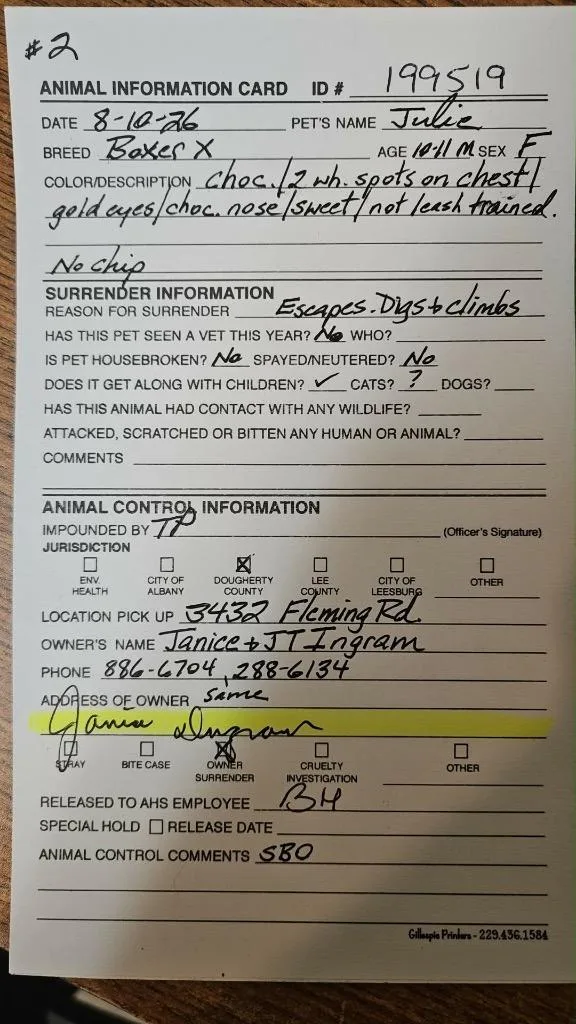 #2
ANIMAL INFORMATION CARD ID # 199519
DATE 8-10-26 PET'S NAME Julie
BREED Boxer X AGE 10-11 M SEX F
COLOR/DESCRIPTION choc./2 wh. spots on chest/
gold eyes/choc. nose/sweet/not leash trained.
No chip
SURRENDER INFORMATION
REASON FOR SURRENDER Escapes. Digs + climbs
HAS THIS PET SEEN A VET THIS YEAR? No WHO?
IS PET HOUSEBROKEN? No SPAYED/NEUTERED? No
DOES IT GET ALONG WITH CHILDREN? ✓ CATS? ? DOGS?
HAS THIS ANIMAL HAD CONTACT WITH ANY WILDLIFE?
ATTACKED, SCRATCHED OR BITTEN ANY HUMAN OR ANIMAL?
COMMENTS
ANIMAL CONTROL INFORMATION
IMPOUNDED BY TP (Officer's Signature)
JURISDICTION
ENV. HEALTH CITY OF ALBANY DOUGHERTY COUNTY LEE COUNTY CITY OF LEESBURG OTHER
LOCATION PICK UP 3432 Fleming Rd.
OWNER'S NAME Janice + JT Ingram
PHONE 886-6704, 288-6134
ADDRESS OF OWNER same
Janice Ingram
STRAY BITE CASE OWNER SURRENDER CRUELTY INVESTIGATION OTHER
RELEASED TO AHS EMPLOYEE BH
SPECIAL HOLD RELEASE DATE
ANIMAL CONTROL COMMENTS SBO
Gillespie Printers - 229.436.1584